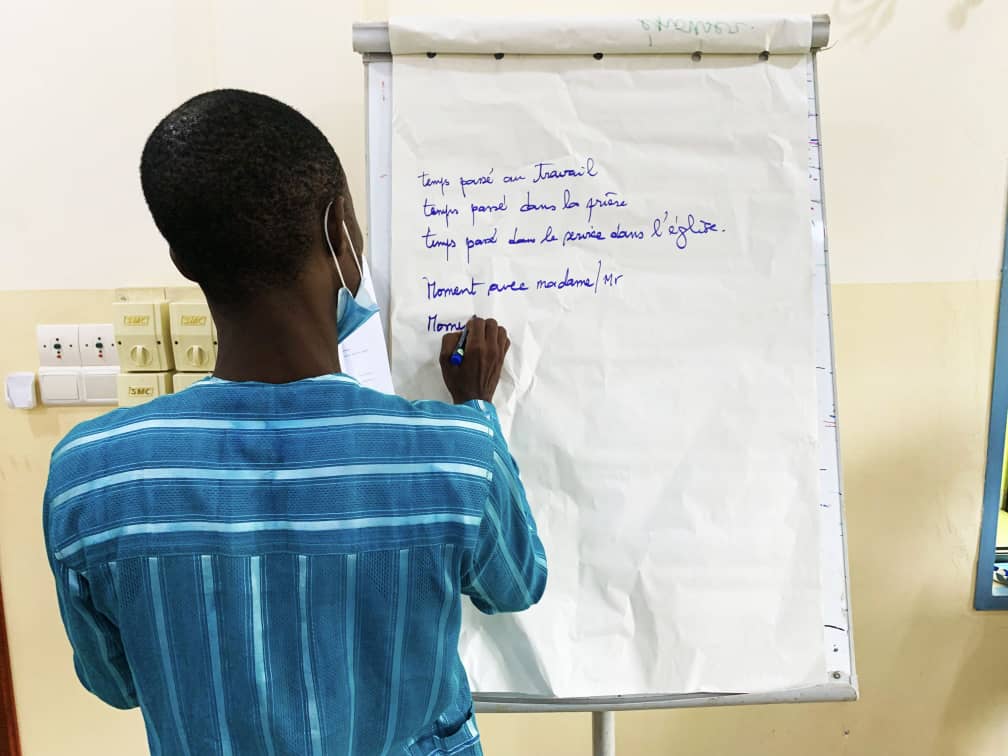 temps passé au travail
temps passé dans la prière
temps passé dans le service dans l'église.
Moment avec madame/Mr
Mome
SMC
SMC
SMC